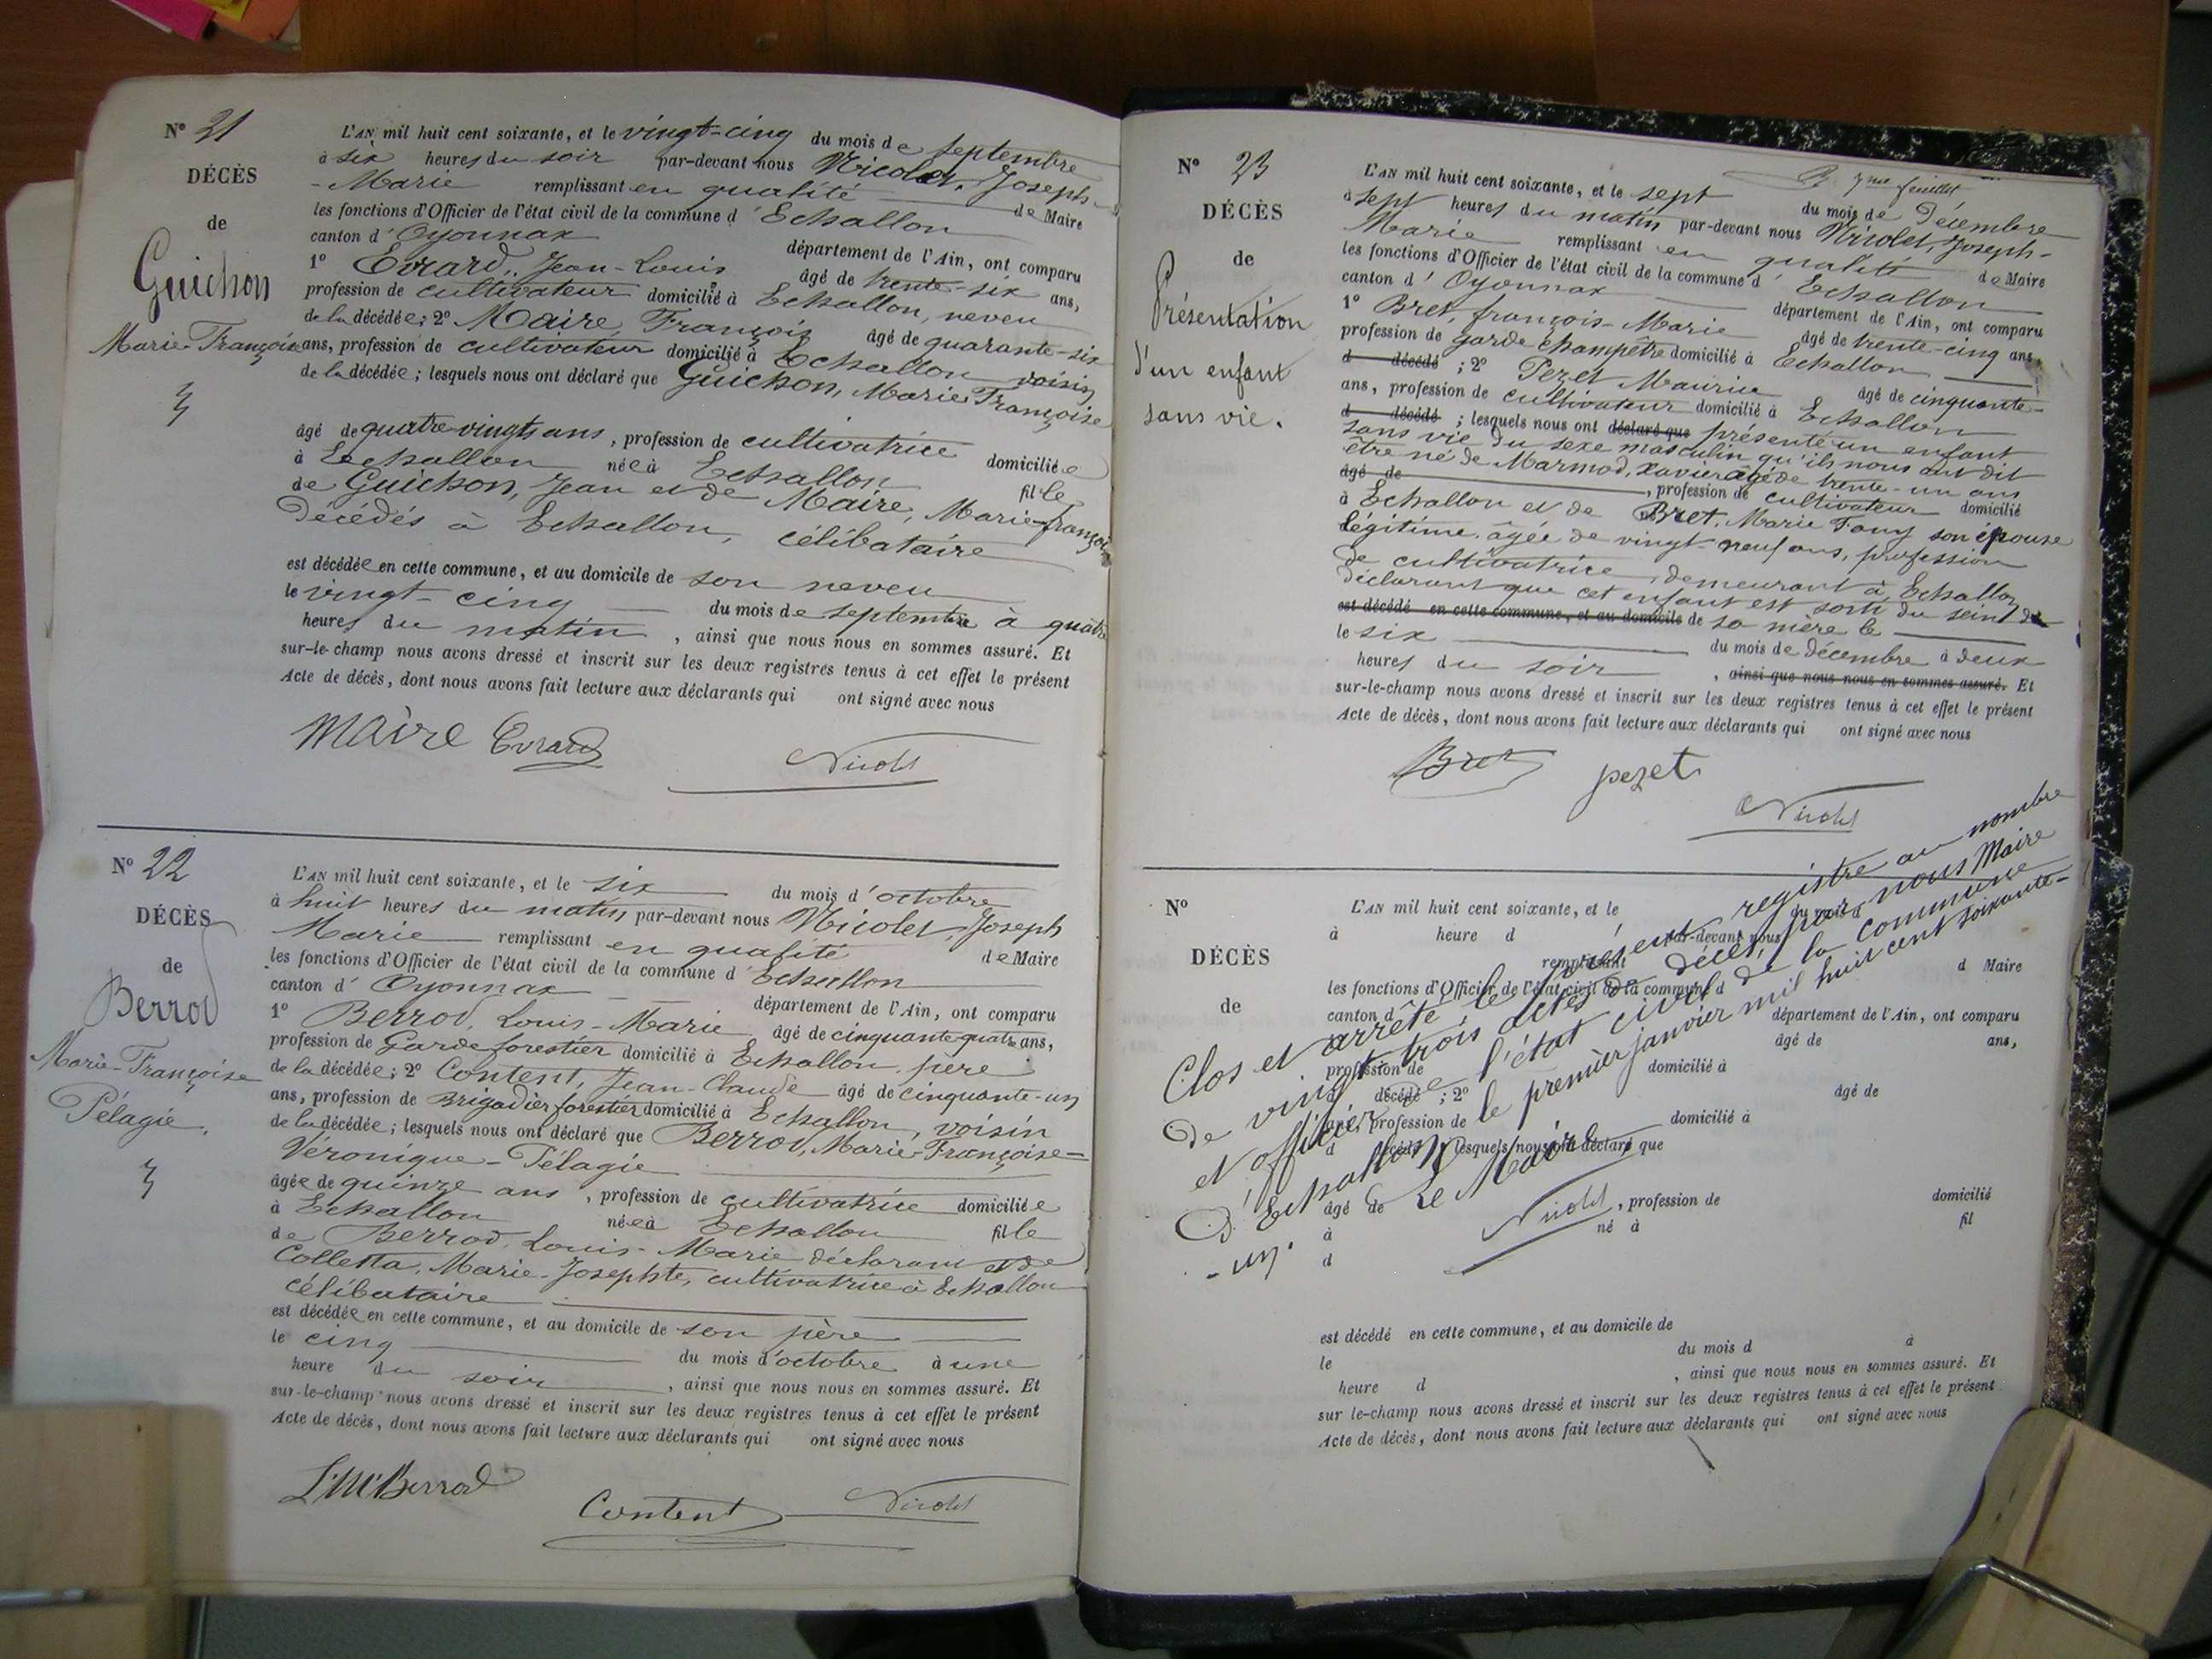 N° 21
DÉCÈS
de
Guichon
Marie-Françoise
L'AN mil huit cent soixante, et le vingt-cinq du mois de septembre
à six heures du soir par-devant nous Nicolet, Joseph-
-Marie remplissant en qualité de Maire
les fonctions d'Officier de l'état civil de la commune d'Echallon
canton d'Oyonnax département de l'Ain, ont comparu
1° Evrard, Jean-Louis âgé de trente-six ans,
profession de cultivateur domicilié à Echallon, neveu
de la décédée; 2° Maire, François âgé de quarante-six
ans, profession de cultivateur domicilié à Echallon voisin
de la décédée; lesquels nous ont déclaré que Guichon, Marie Françoise
âgé de quatre vingts ans, profession de cultivatrice domiciliée
à Echallon née à Echallon fille
de Guichon, Jean et de Maire, Marie-françoise
décédés à Echallon, célibataire
est décédée en cette commune, et au domicile de son neveu
le vingt-cinq du mois de septembre à quatre
heures du matin, ainsi que nous nous en sommes assuré. Et
sur-le-champ nous avons dressé et inscrit sur les deux registres tenus à cet effet le présent
Acte de décès, dont nous avons fait lecture aux déclarants qui ont signé avec nous
Maire Evrard Nicolet
N° 22
DÉCÈS
de
Berrod
Marie-Françoise
Pélagie.
L'AN mil huit cent soixante, et le six du mois d'octobre
à huit heures du matin par-devant nous Nicolet, Joseph
Marie remplissant en qualité de Maire
les fonctions d'Officier de l'état civil de la commune d'Echallon
canton d'Oyonnax département de l'Ain, ont comparu
1° Berrod, Louis-Marie âgé de cinquante quatre ans,
profession de Garde forestier domicilié à Echallon, père
de la décédée; 2° Content, Jean-Claude âgé de cinquante-un
ans, profession de Brigadier forestier domicilié à Echallon, voisin
de la décédée; lesquels nous ont déclaré que Berrod, Marie-Françoise-
Véronique-Pélagie
âgée de quinze ans, profession de cultivatrice domiciliée
à Echallon née à Echallon fille
de Berrod, Louis-Marie déclarant et de
Colletta, Marie-Josephte, cultivatrice à Echallon
célibataire
est décédée en cette commune, et au domicile de son père
le cinq du mois d'octobre à une
heure du soir, ainsi que nous nous en sommes assuré. Et
sur-le-champ nous avons dressé et inscrit sur les deux registres tenus à cet effet le présent
Acte de décès, dont nous avons fait lecture aux déclarants qui ont signé avec nous
L.M.Berrod Content Nicolet
7me feuillet
N° 23
DÉCÈS
de
Présentation
d'un enfant
sans vie.
L'AN mil huit cent soixante, et le sept du mois de décembre
à sept heures du matin par-devant nous Nicolet, Joseph-
Marie remplissant en qualité de Maire
les fonctions d'Officier de l'état civil de la commune d'Echallon
canton d'Oyonnax département de l'Ain, ont comparu
1° Bret, françois-Marie âgé de trente-cinq ans,
profession de garde champêtre domicilié à Echallon
d décédé ; 2° Pezet Maurice âgé de cinquante-
ans, profession de cultivateur domicilié à Echallon
d décédé ; lesquels nous ont déclaré que présenté un enfant
sans vie du sexe masculin qu'ils nous ont dit
être né de Marmod, Xavier âgé de trente-un ans
âgé de , profession de cultivateur domicilié
à Echallon et de Bret, Marie Fany son épouse
légitime, âgée de vingt-neuf ans, profession
de cultivatrice, demeurant à Echallon
déclarant que cet enfant est sorti du sein de
est décédé en cette commune, et au domicile de sa mère le
le six du mois de décembre à deux
heures du soir, ainsi que nous nous en sommes assuré. Et
sur-le-champ nous avons dressé et inscrit sur les deux registres tenus à cet effet le présent
Acte de décès, dont nous avons fait lecture aux déclarants qui ont signé avec nous
Bret pezet
Nicolet
N°
DÉCÈS
de
L'AN mil huit cent soixante, et le du mois d
à heure d par-devant nous
remplissant d Maire
les fonctions d'Officier de l'état civil de la commune d
canton d département de l'Ain, ont comparu
âgé de ans,
profession de domicilié à
d décédé ; 2° âgé de
ans, profession de domicilié à
d décédé ; lesquels nous ont déclaré que
âgé de , profession de domicilié
à né à fil
d
Clos et arrêté le présent registre au nombre
de vingt trois actes de décès, par nous Maire
et officier de l'état civil de la commune
d'Echallon le premier janvier mil huit cent soixante-
-un.
Le Maire
Nicolet
est décédé en cette commune, et au domicile de
le du mois d à
heure d , ainsi que nous nous en sommes assuré. Et
sur le-champ nous avons dressé et inscrit sur les deux registres tenus à cet effet le présent
Acte de décès, dont nous avons fait lecture aux déclarants qui ont signé avec nous